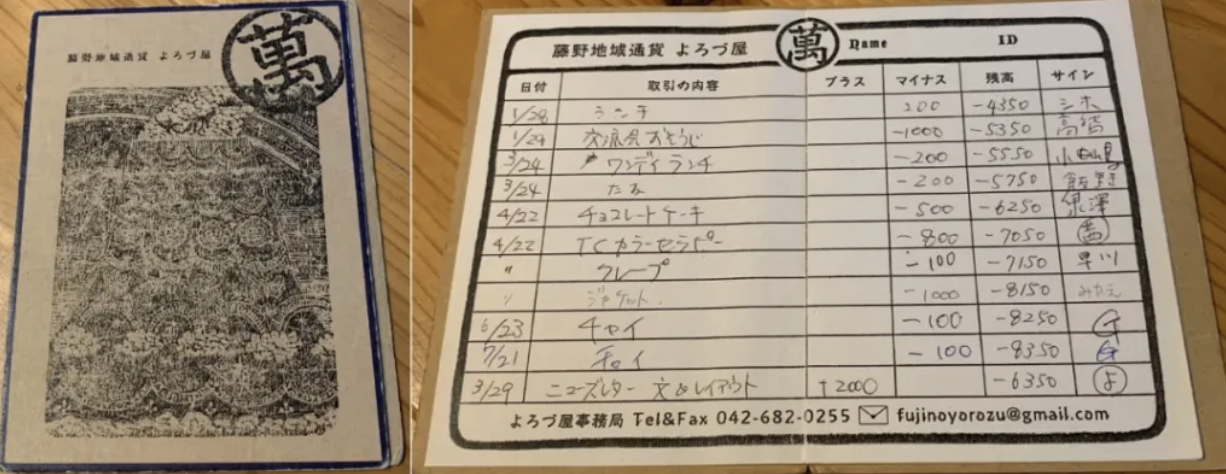 藤野地域通貨 よろづ屋
萬
藤野地域通貨 よろづ屋 萬 Name ID
日付 取引の内容 プラス マイナス 残高 サイン
1/28 ランチ 200 -4350 シホ
1/29 交流会おそうじ -1000 -5350
3/24 ワンデイランチ -200 -5550
3/24 -200 -5750
4/22 チョコレートケーキ -500 -6250 泉澤
4/22 TCカラーセラピー -800 -7050
〃 クレープ -100 -7150 早川
〃 ジャケット. -1000 -8150 みかえ
6/23 チャイ -100 -8250
7/21 チャイ -100 -8350
3/29 ニューズレター 文&レイアウト +2000 -6350 よ
よろづ屋事務局 Tel&Fax 042-682-0255 fujinoyorozu@gmail.com